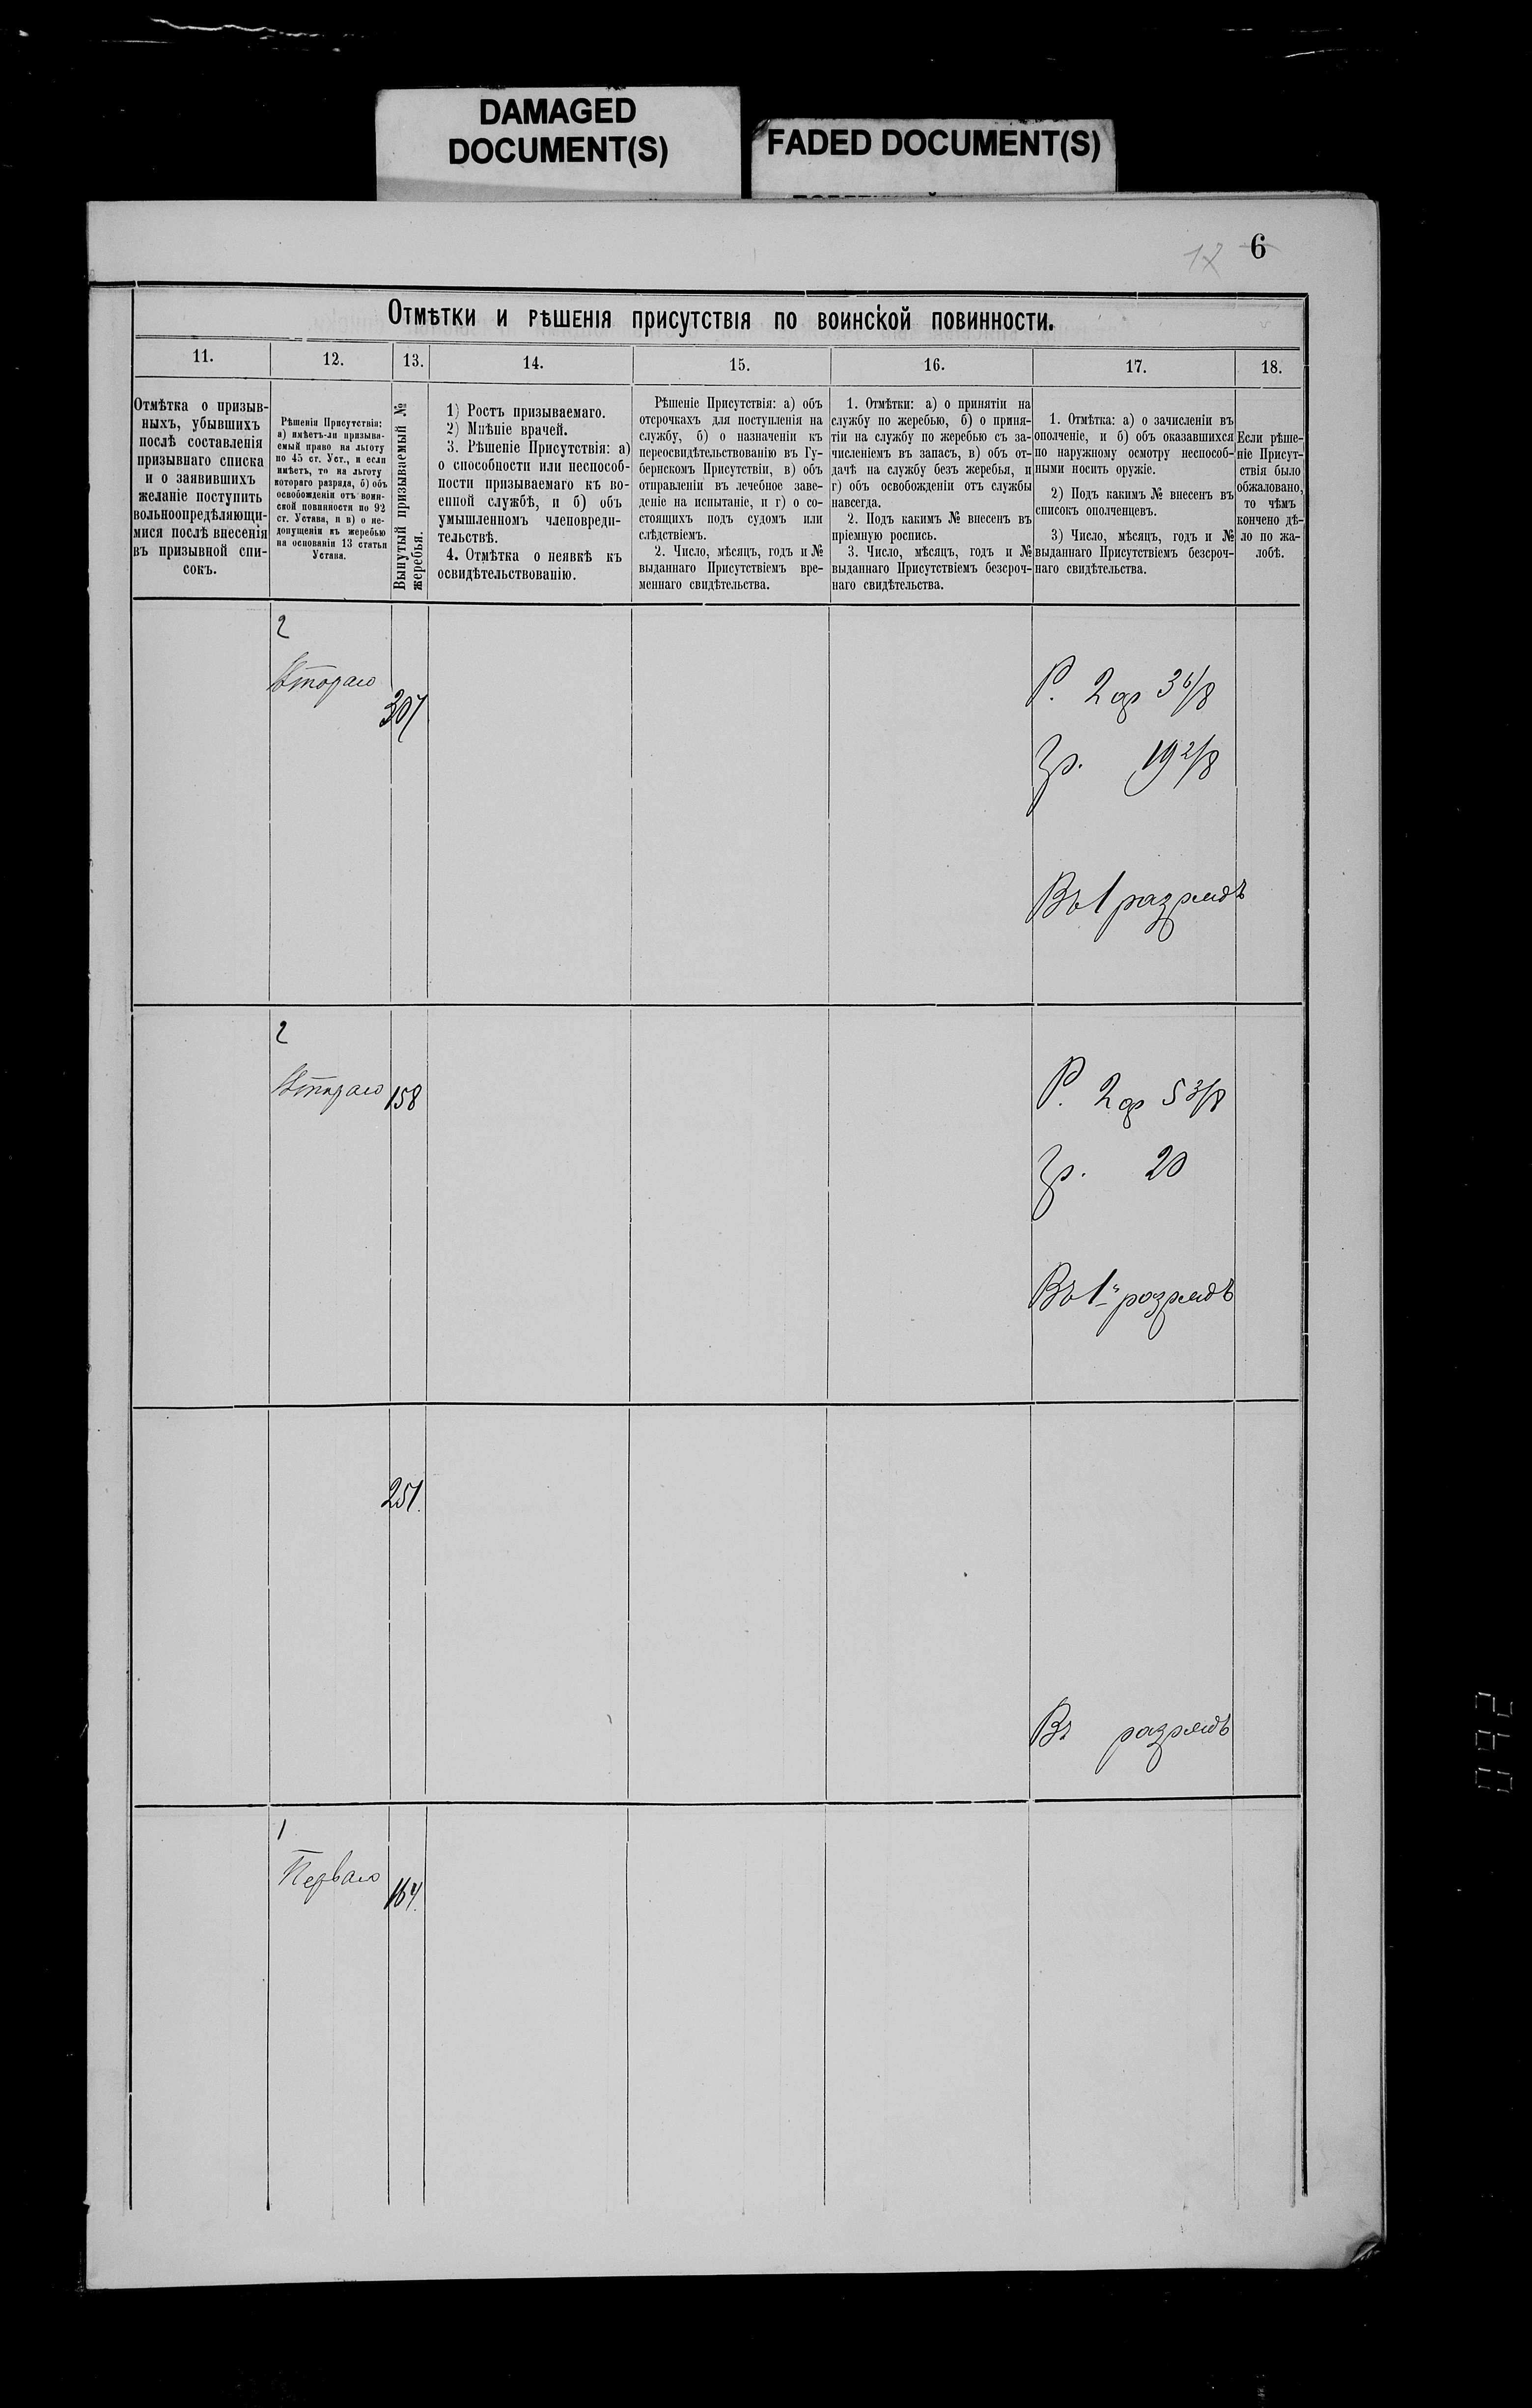 DAMAGED
DOCUMENT(S)
FADED DOCUMENT(S)
6
Отмѣтки и рѣшенія присутствія по воинской повинности.
11.
12.
13.
14.
15.
16.
17.
18.
Отмѣтка о призыв-
ныхъ, убывшихъ
послѣ составленія
призывнаго списка
и о заявившихъ
желаніе поступить
вольноопредѣляющи-
мися послѣ внесенія
въ призывной спи-
сокъ.
Рѣшенія Присутствія:
а) имѣетъ-ли призыва-
емый право на льготу
по 45 ст. Уст., и если
имѣетъ, то на льготу
котораго разряда, б) объ
освобожденіи отъ воин-
ской повинности по 92
ст. Устава, и в) о не-
допущеніи къ жеребью
на основаніи 13 статьи
Устава.
Вынутый призываемый №
жеребья.
1) Ростъ призываемаго.
2) Мнѣніе врачей.
3. Рѣшеніе Присутствія: а)
о способности или неспособ-
ности призываемаго къ во-
енной службѣ, и б) объ
умышленномъ членовреди-
тельствѣ.
4. Отмѣтка о неявкѣ къ
освидѣтельствованію.
Рѣшеніе Присутствія: а) объ
отсрочкахъ для поступленія на
службу, б) о назначеніи къ
переосвидѣтельствованію въ Гу-
бернскомъ Присутствіи, в) объ
отправленіи въ лечебное заве-
деніе на испытаніе, и г) о со-
стоящихъ подъ судомъ или
слѣдствіемъ.
2. Число, мѣсяцъ, годъ и №
выданнаго Присутствіемъ вре-
меннаго свидѣтельства.
1. Отмѣтки: а) о принятіи на
службу по жеребью, б) о приня-
тіи на службу по жеребью съ за-
численіемъ въ запасъ, в) объ от-
дачѣ на службу безъ жеребья, и
г) объ освобожденіи отъ службы
навсегда.
2. Подъ какимъ № внесенъ въ
пріемную роспись.
3. Число, мѣсяцъ, годъ и №
выданнаго Присутствіемъ безсроч-
наго свидѣтельства.
1. Отмѣтка: а) о зачисленіи въ
ополченіе, и б) объ оказавшихся
по наружному осмотру неспособ-
ными носить оружіе.
2) Подъ какимъ № внесенъ въ
списокъ ополченцевъ.
3) Число, мѣсяцъ, годъ и №
выданнаго Присутствіемъ безсроч-
наго свидѣтельства.
Если рѣше-
ніе Присут-
ствія было
обжаловано,
то чѣмъ
кончено дѣ-
ло по жа-
лобѣ.
2
Втораго
307
Р. 2 ар 3 6/8
Гр. 19 2/8
Въ 1 разрядъ
2
Втораго
158
Р. 2 ар 5 3/8
Гр. 20
Въ 1й разрядъ
251.
Въ разрядъ
1
Перваго
164.
042